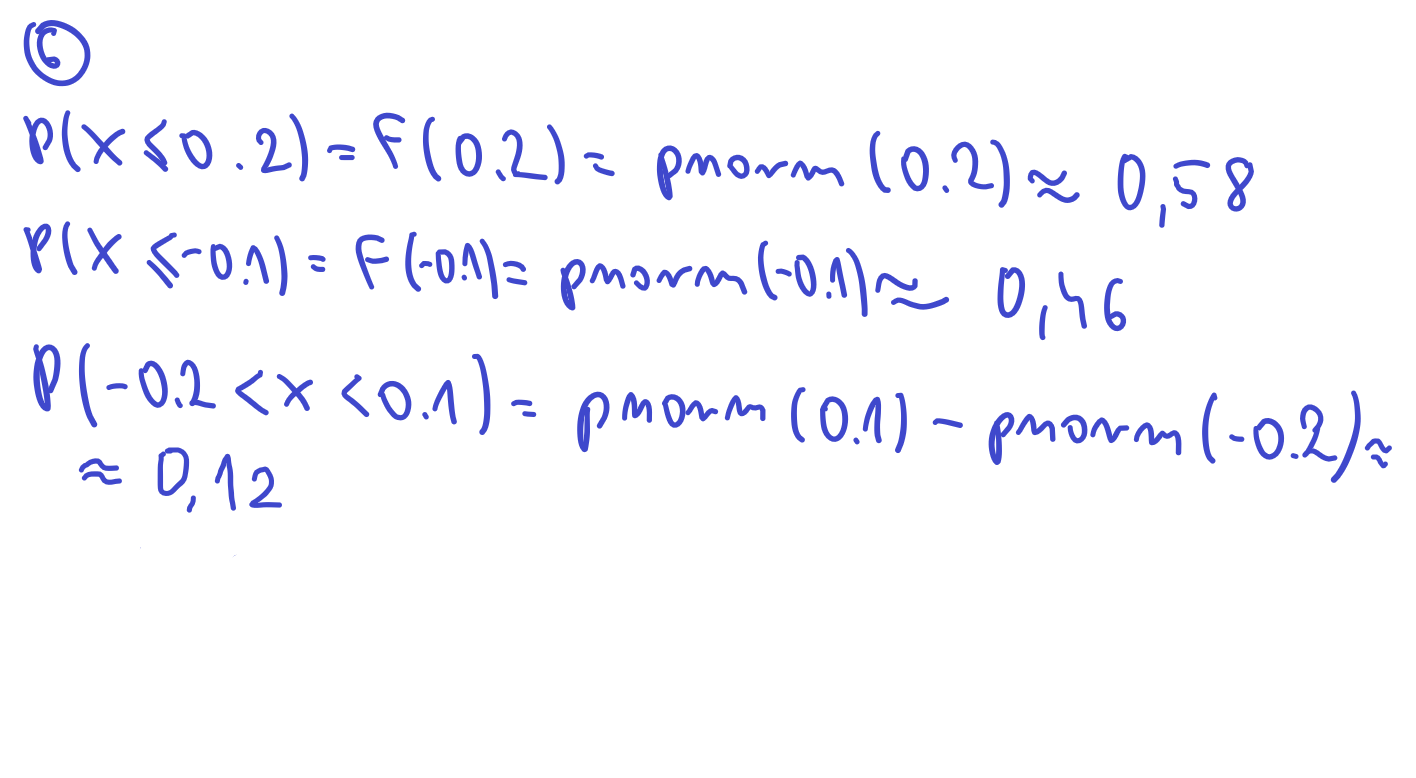 6
P(X ≤ 0.2) = F(0.2) = pnorm(0.2) ≈ 0,58
P(X ≤ -0.1) = F(-0.1) = pnorm(-0.1) ≈ 0,46
P(-0.2 < x < 0.1) = pnorm(0.1) - pnorm(-0.2) ≈
≈ 0,12